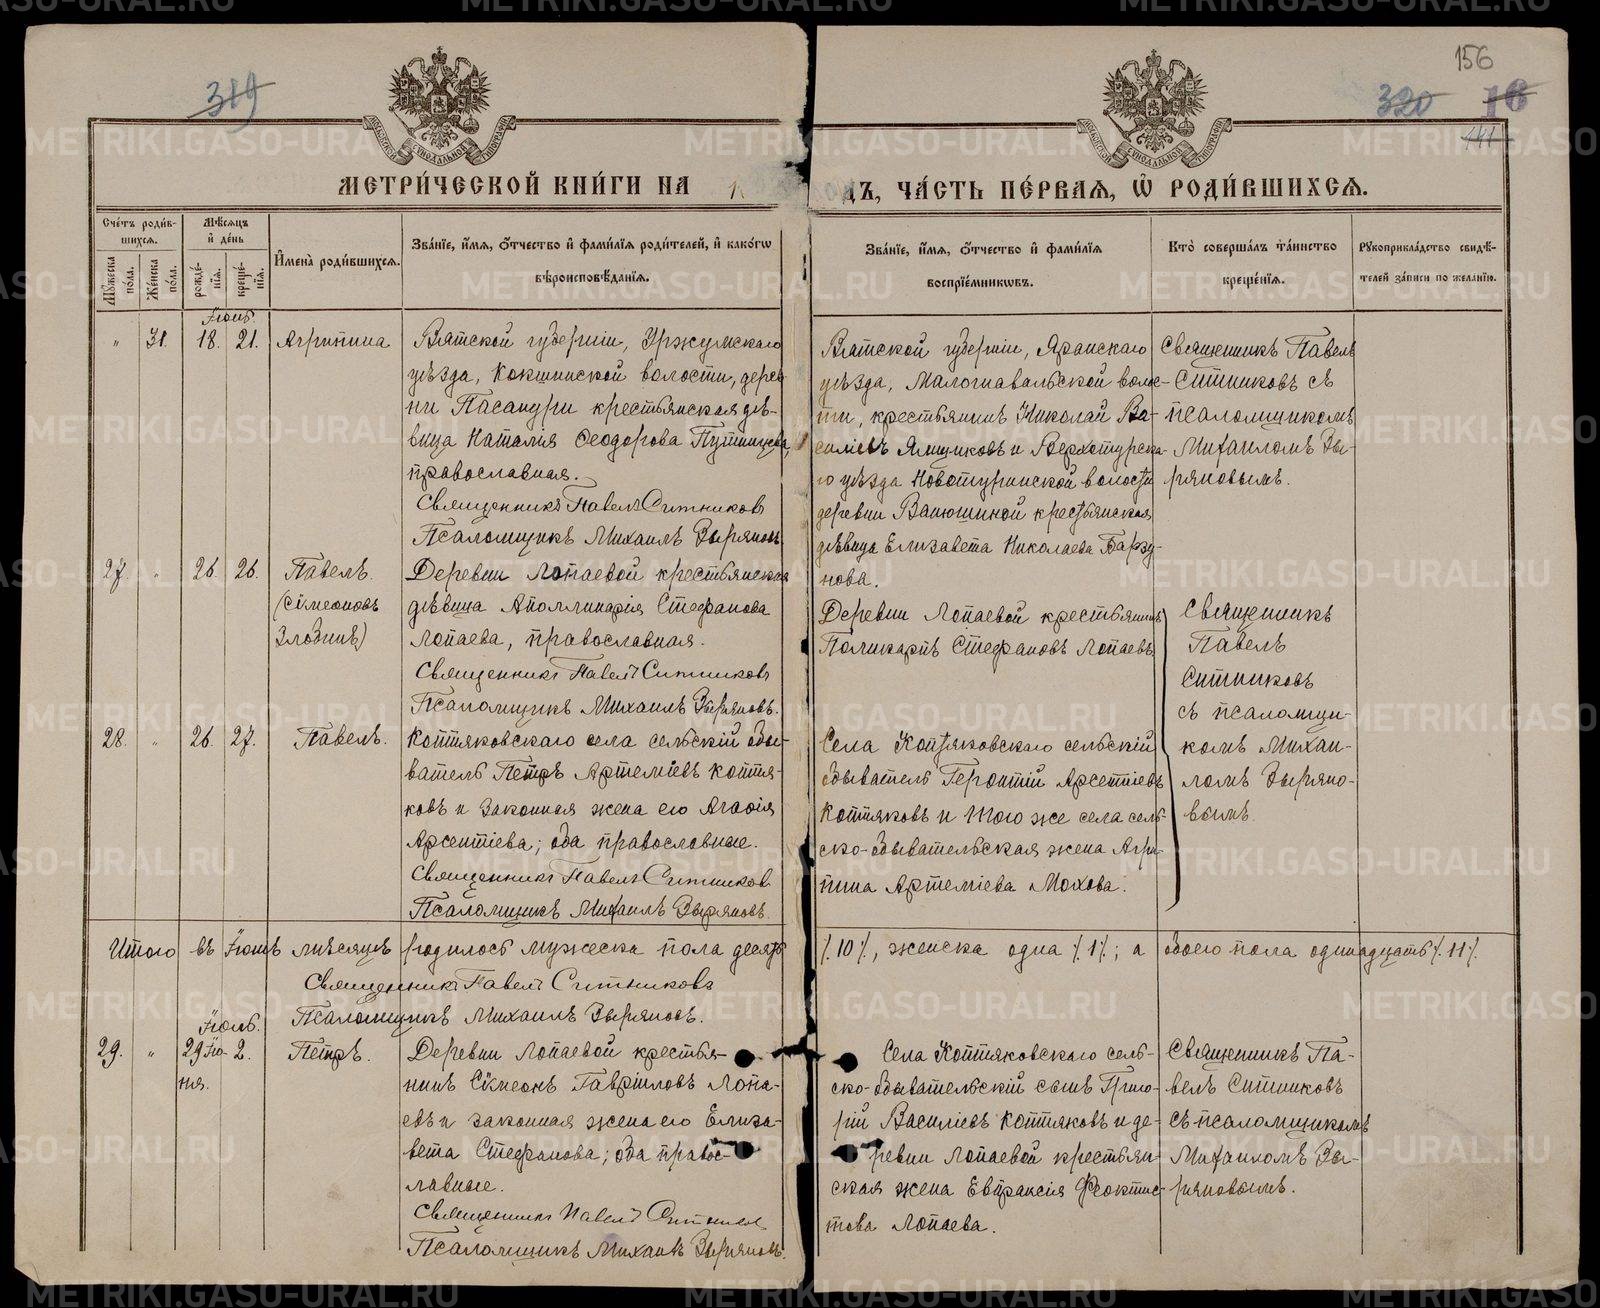 319
156
320 16
141
МОСКОВСКОЙ СУНОДАЛЬНОЙ ТИПОГРАФІИ
МОСКОВСКОЙ СУНОДАЛЬНОЙ ТИПОГРАФІИ
МЕТРИ́ЧЕСКОЙ КНИ́ГИ НА
ДЪ, ЧА́СТЬ ПЕ́РВАЯ, Ѽ РОДИ́ВШИХСЯ.
Сче́тъ роди́вшихся.
Мѹ́жеска по́ла.
Же́нска по́ла.
Мѣ́сяцъ и҆ де́нь
рожде́нїя.
креще́нїя.
И҆мена̀ роди́вшихся.
Зва́нїе, и҆́мя, ѻ҆́тчество и҆ фами́лїя роди́телей, и҆ како́гѡ вѣроисповѣ́данїя.
Зва́нїе, и҆́мя, ѻ҆́тчество и҆ фами́лїя воспрїе́мникѡвъ.
Кто̀ соверша́лъ та́инство креще́нїя.
Рѹкоприкла́дство свидѣ́телей за́писи по жела́нїю.
Іюнь.
" 31. 18. 21. Агрипина
Вятской губерніи, Уржумскаго
уѣзда, Кокшинской волости, дерев-
ни Пасандури крестьянская дѣ-
вица Наталія Ѳеодорова Путинцева,
православная.
Священникъ Павелъ Ситниковъ
Псаломщикъ Михаилъ Зыряновъ.
Вятской губерніи, Яранскаго
уѣзда, Малошавальской волос-
ти, крестьянинъ Николай Ва-
сильевъ Ямщиковъ и Верхотурска-
го уѣзда Новотуринской волости
деревни Ванюшиной крестьянская
дѣвица Елизавета Николаева Барзу-
нова.
Священникъ Павелъ
Ситниковъ съ
псаломщикомъ
Михаиломъ Зы-
ряновымъ.
27. " 26. 26. Павелъ.
(Сѵмеоновъ
Злобинъ)
Деревни Лопаевой крестьянская
дѣвица Аполлинарія Стефанова
Лопаева, православная.
Священникъ Павелъ Ситниковъ
Псаломщикъ Михаилъ Зыряновъ.
Деревни Лопаевой крестьянинъ
Поликарпъ Стефановъ Лопаевъ
Священникъ
Павелъ
Ситниковъ
съ псаломщи-
комъ Михаи-
ломъ Зыряно-
вымъ.
28. " 26. 27. Павелъ.
Коптяковскаго села сельскій обы-
ватель Петръ Артеміевъ Коптя-
ковъ и законная жена его Агафія
Арсентіева; оба православные.
Священникъ Павелъ Ситниковъ
Псаломщикъ Михаилъ Зыряновъ.
Села Коптяковскаго сельскій
обыватель Геронтій Арсентіевъ
Коптяковъ и того же села сель-
ско-обывательская жена Агри-
пина Артеміева Мохова.
Итого въ Іюнѣ мѣсяцѣ родилось мужеска пола десять /.10/., женска одна /.1/.; а обоего пола одинадцать /.11/.
Священникъ Павелъ Ситниковъ
Псаломщикъ Михаилъ Зыряновъ.
Іюль.
29. " 29 Ію- 2. Петръ.
ня.
Деревни Лопаевой крестья-
нинъ Сѵмеонъ Гавріиловъ Лопа-
евъ и законная жена его Елиза-
вета Стефанова; оба правос-
лавные.
Священникъ Павелъ Ситников
Псаломщикъ Михаилъ Зыряновъ.
Села Коптяковскаго сель-
ско-обывательскій сынъ Григо-
рій Василіевъ Коптяковъ и де-
ревни Лопаевой крестьян-
ская жена Евпраксія Ѳеоктис-
това Лопаева.
Священникъ Па-
велъ Ситниковъ
съ псаломщикомъ
Михаиломъ Зы-
ряновымъ.
METRIKI.GASO-URAL.RU